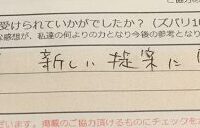 受けられていかがでしたか？（ズバリ10
な感想が、私達の何よりの力となり今後の参考となり
新しい提案に
ざいます。掲載のご協力頂けるものにチェックをお